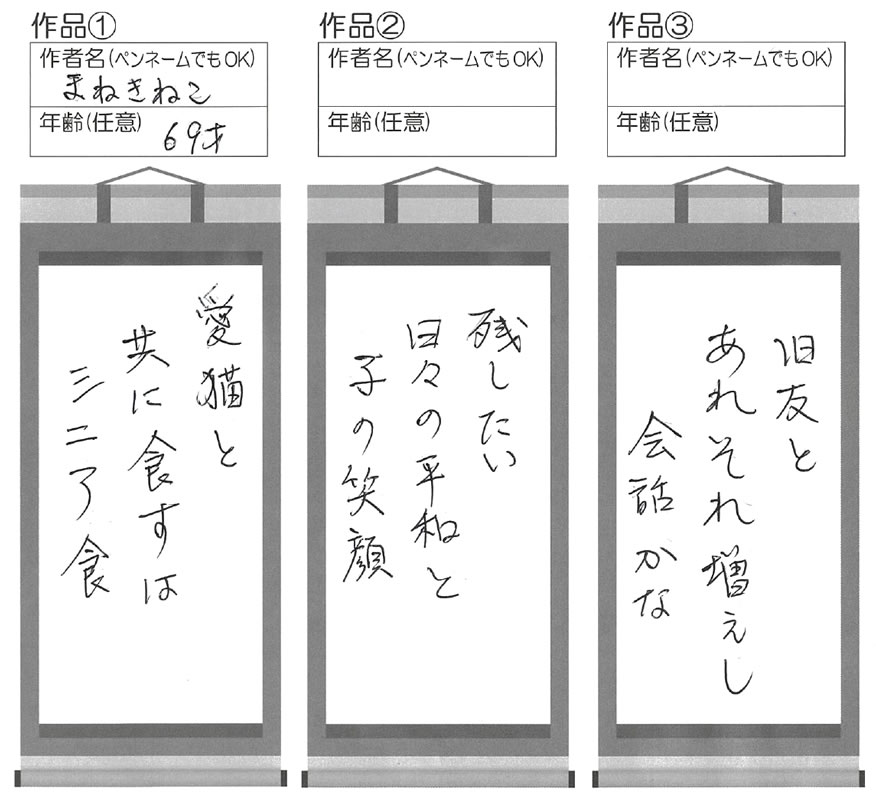 作品①
作者名(ペンネームでもOK)
まねきねこ
年齢(任意)
69才
愛猫と
共に食すは
シニア食
作品②
作者名(ペンネームでもOK)
年齢(任意)
残したい
日々の平和と
子の笑顔
作品③
作者名(ペンネームでもOK)
年齢(任意)
旧友と
あれそれ増えし
会話かな